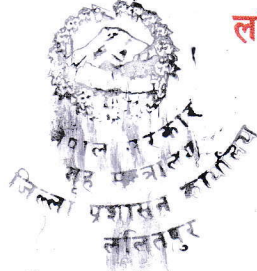 ल
नेपाल सरकार
गृह मन्त्रालय
जिल्ला प्रशासन कार्यालय
ललितपुर